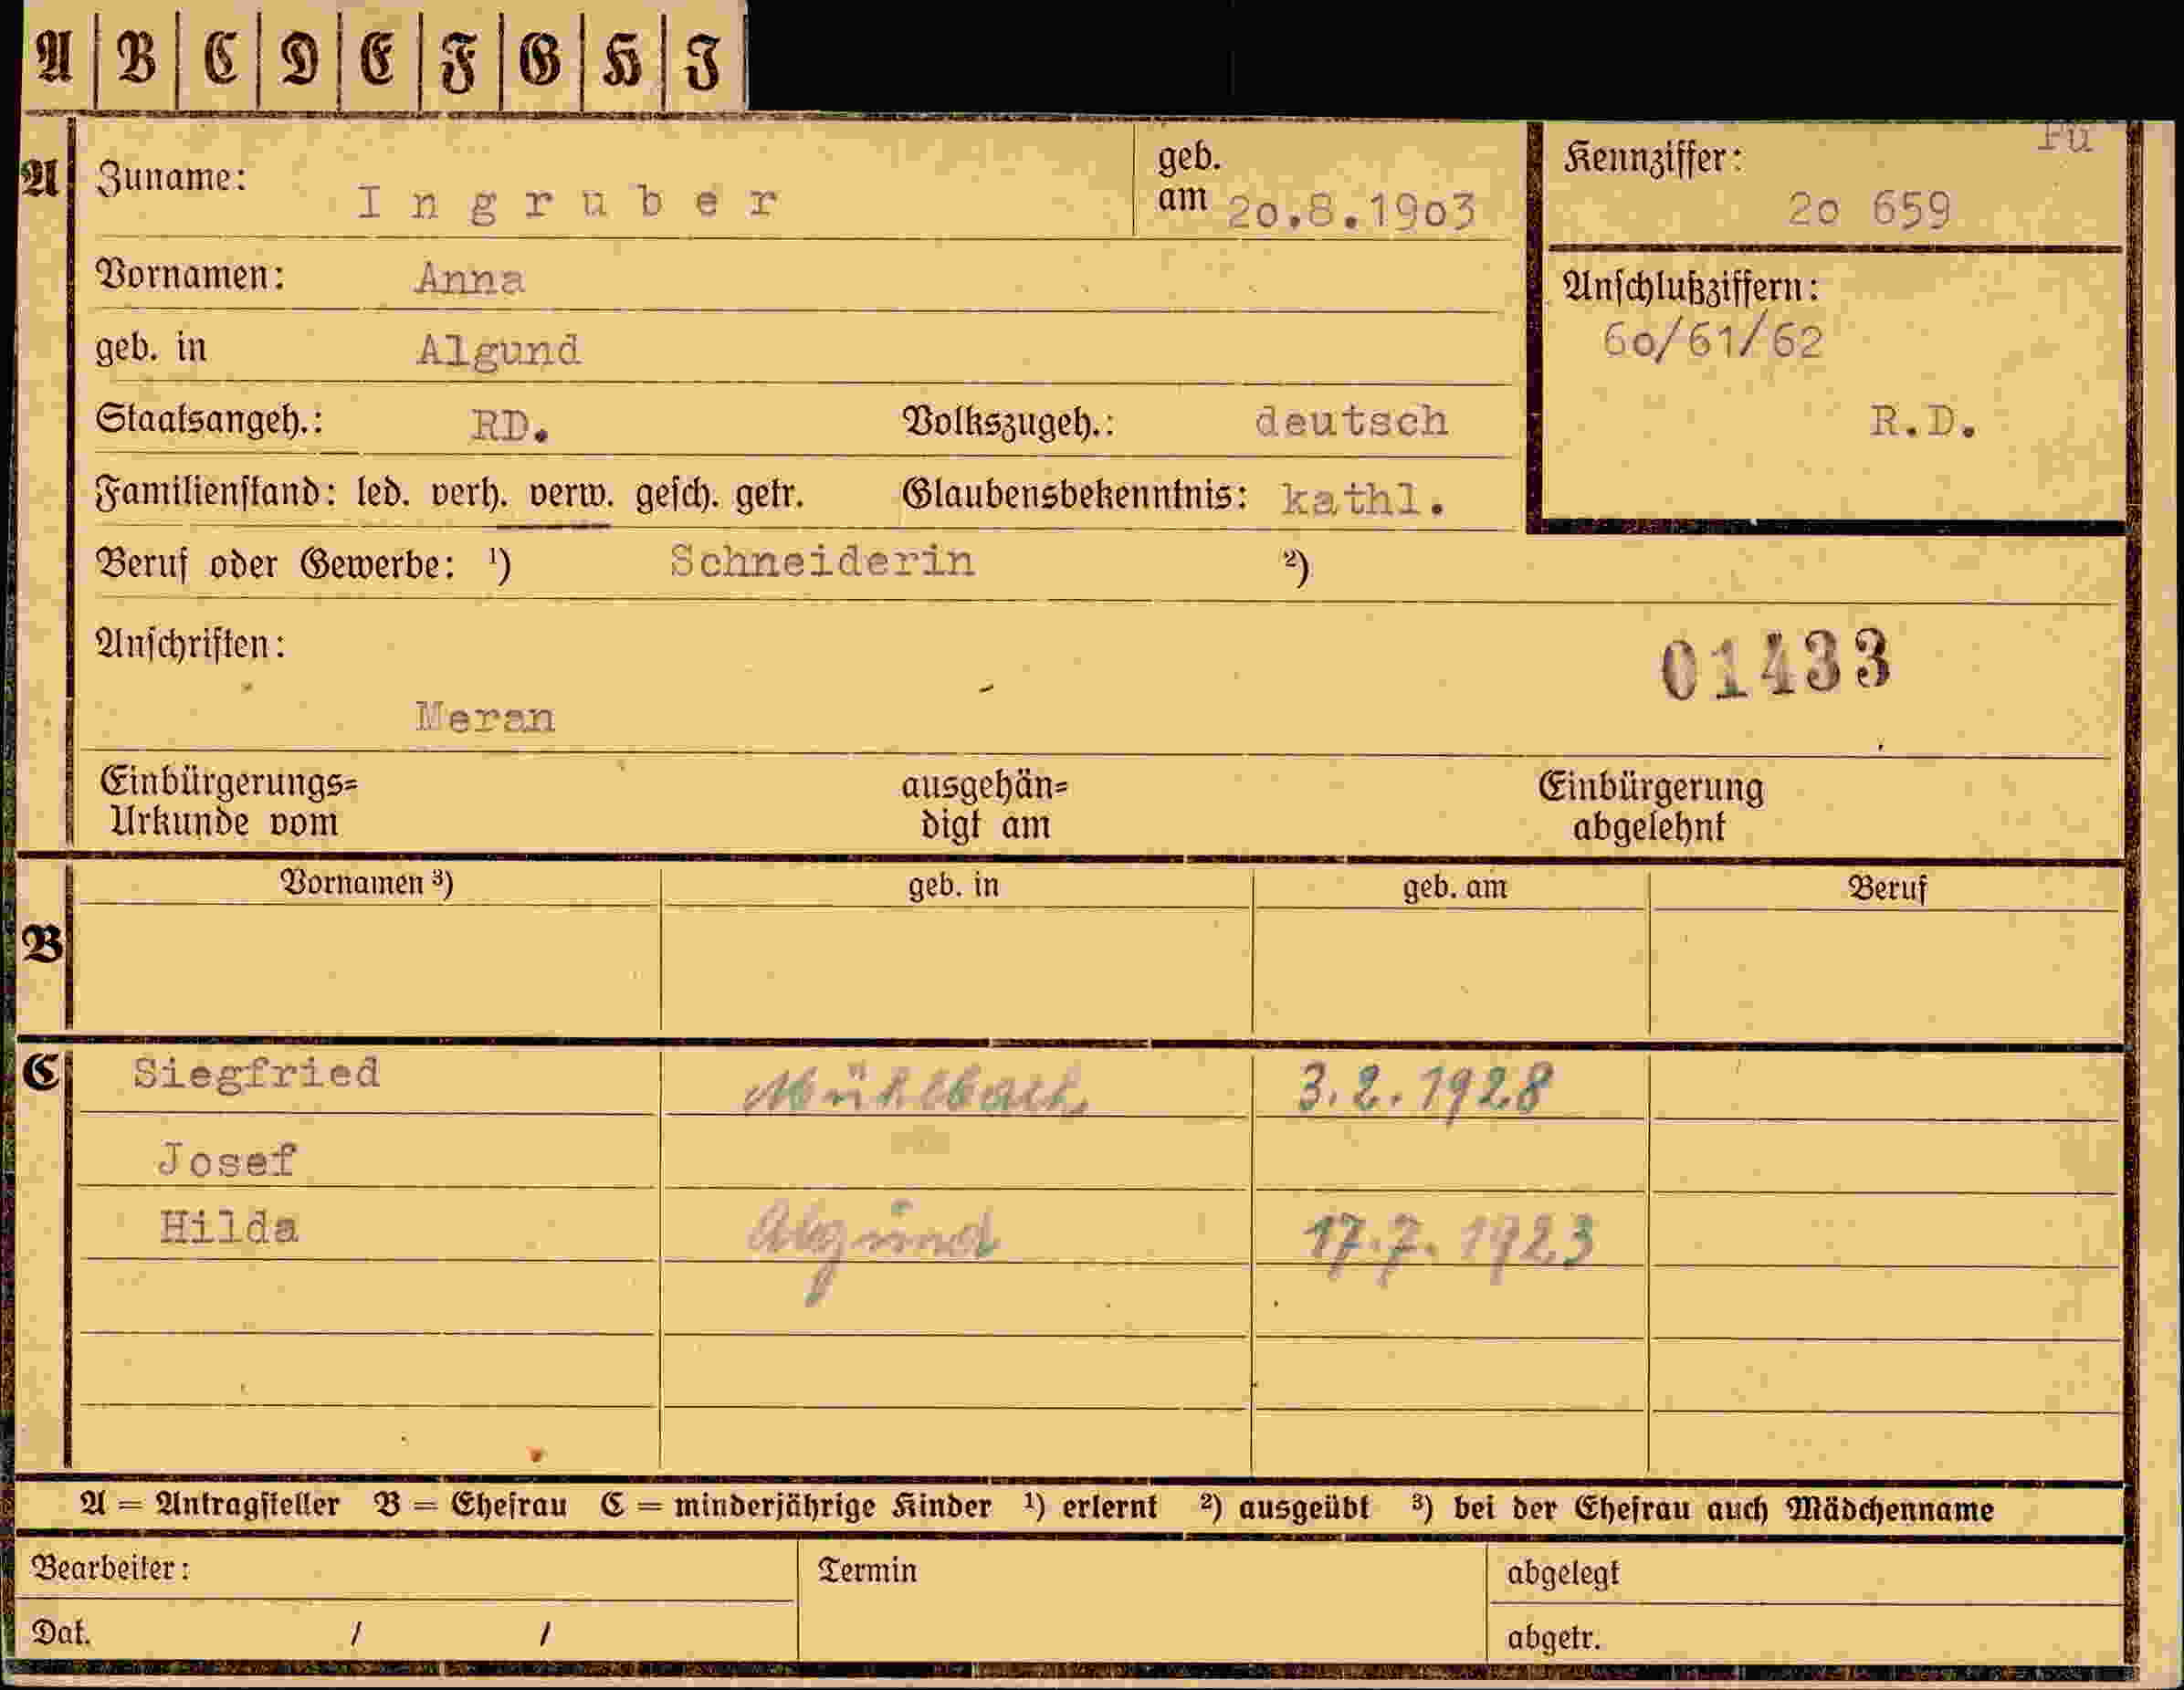 A B C D E F G H I
Fü
A Zuname: Ingruber geb. am 20.8.1903 Kennziffer: 20 659
Vornamen: Anna
Anschlußziffern:
geb. in Algund 60/61/62
Staatsangeh.: RD. Volkszugeh.: deutsch R.D.
Familienstand: led. verh. verw. gesch. getr. Glaubensbekenntnis: kathl.
Beruf oder Gewerbe: ¹) Schneiderin ²)
Anschriften: 01433
Meran
Einbürgerungs= ausgehän= Einbürgerung
Urkunde vom digt am abgelehnt
Vornamen ³) geb. in geb. am Beruf
B
C Siegfried Mühlbach 3.2.1928
Josef
Hilda Algund 17.7.1923
A = Antragsteller B = Ehefrau C = minderjährige Kinder ¹) erlernt ²) ausgeübt ³) bei der Ehefrau auch Mädchenname
Bearbeiter: Termin abgelegt
Dat. / / abgetr.